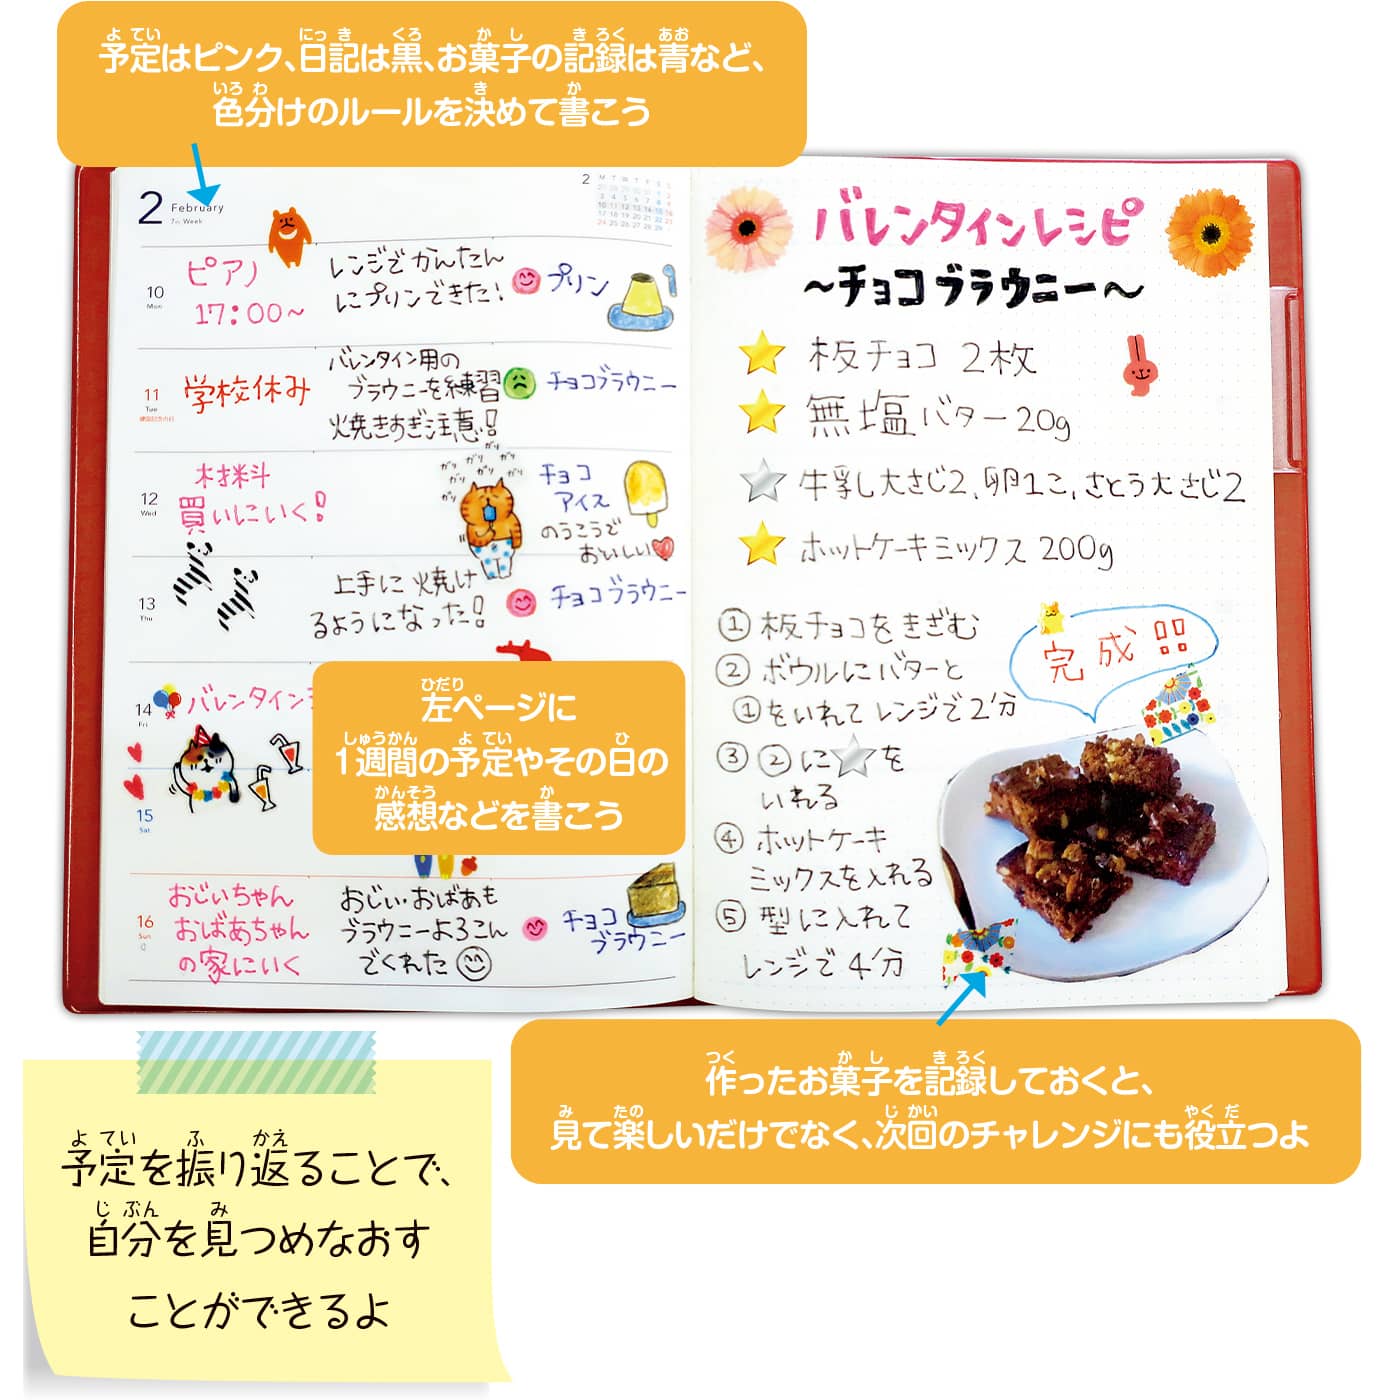 予定はピンク、日記は黒、お菓子の記録は青など、
色分けのルールを決めて書こう
2 February
7th Week
2
M T W T F S S
10 11 12 13 14 15 16
17 18 19 20 21 22 23
24 25 26 27 28 29
10
Mon
ピアノ
17:00〜
レンジでかんたん
にプリンできた!
プリン
11
Tue
建国記念の日
学校休み
バレンタイン用の
ブラウニーを練習
焼きすぎ注意!
チョコブラウニー
12
Wed
材料
買いにいく!
ガリ ガリ ガリ ガリ ガリ ガリ ガリ
チョコ
アイス
のうこうで
おいしい
13
Thu
上手に焼け
るようになった!
チョコブラウニー
14
Fri
バレンタイン
左ページに
1週間の予定やその日の
感想などを書こう
15
Sat
16
Sun
おじいちゃん
おばあちゃん
の家にいく
おじい・おばあも
ブラウニーよろこん
でくれた
チョコ
ブラウニー
バレンタインレシピ
〜チョコブラウニー〜
板チョコ 2枚
無塩バター20g
牛乳大さじ2、卵1こ、さとう大さじ2
ホットケーキミックス 200g
①板チョコをきざむ
②ボウルにバターと
①をいれてレンジで2分
③②に☆を
いれる
④ホットケーキ
ミックスを入れる
⑤型に入れて
レンジで4分
完成!!
作ったお菓子を記録しておくと、
見て楽しいだけでなく、次回のチャレンジにも役立つよ
予定を振り返ることで、
自分を見つめなおす
ことができるよ